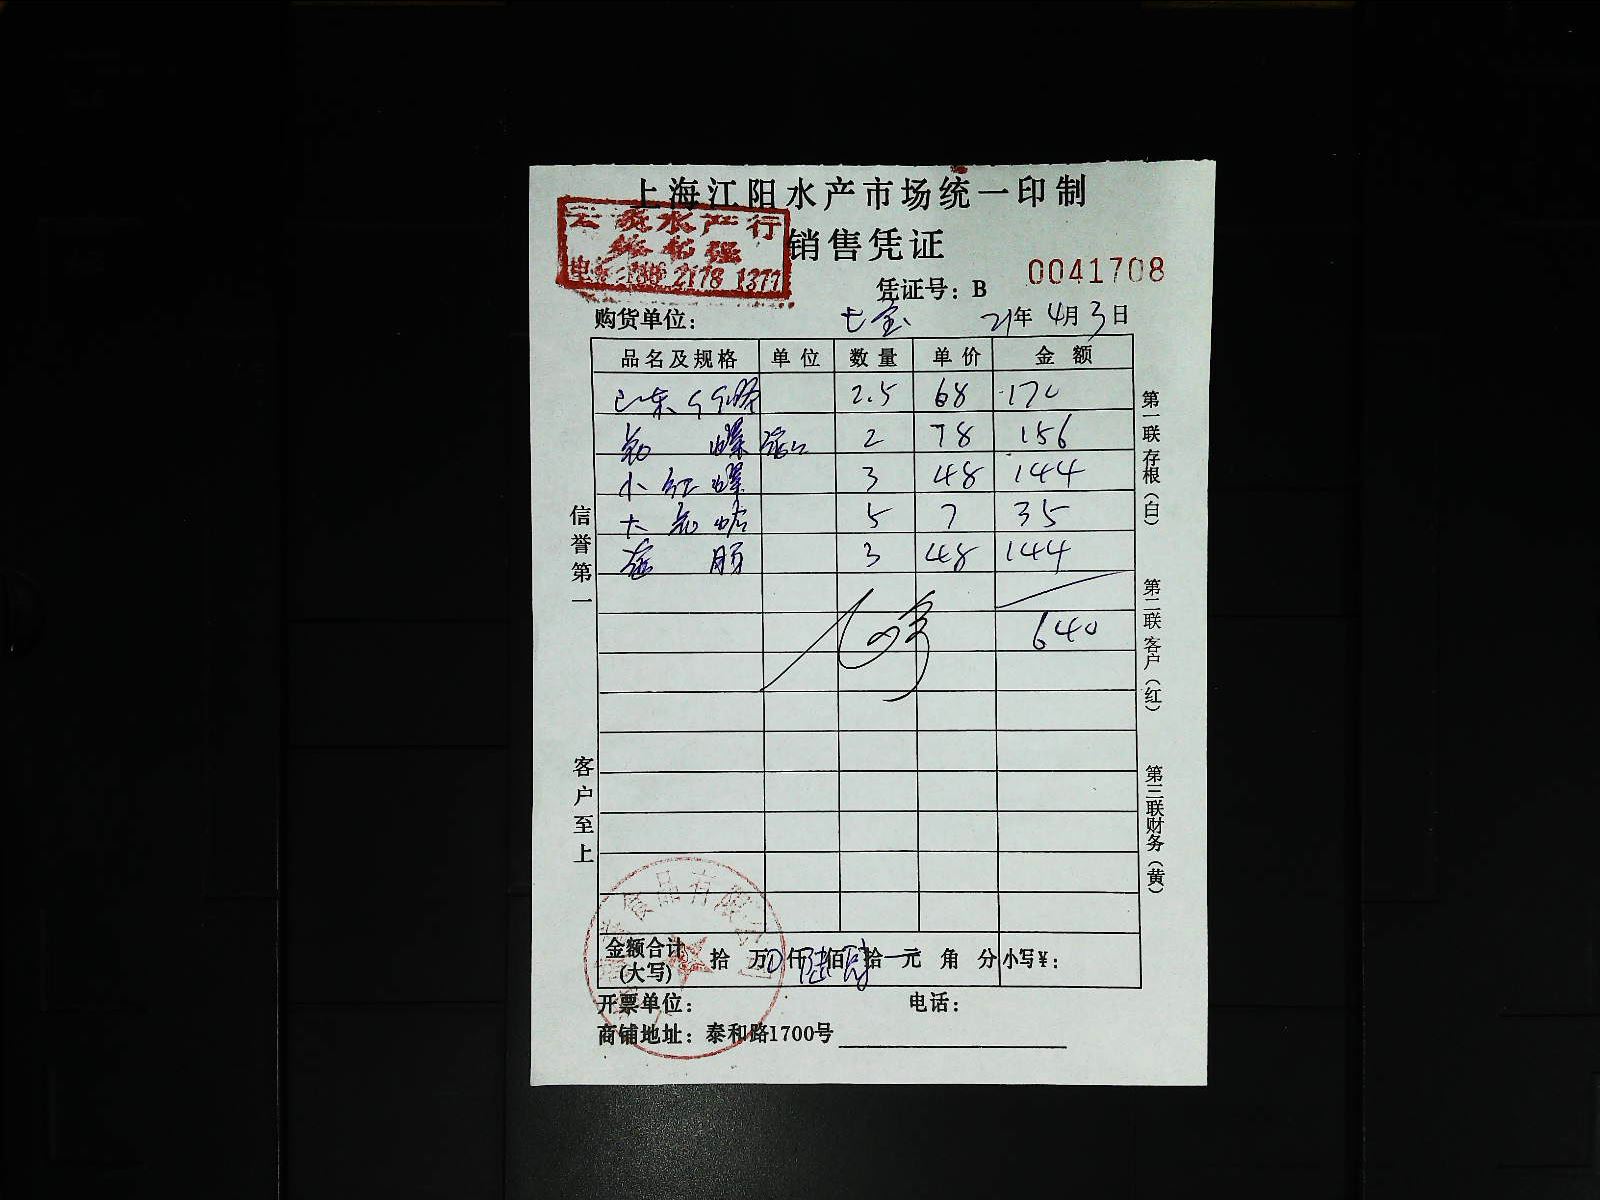 上海江阳水产市场统一印制
水产行
2178 1377
销售凭证
凭证号：B 0041708
购货单位： 七宝 21年 4月 3日
品名及规格 单位 数量 单价 金额
山东 2.5 68 170
螺 2 78 156
小红螺 3 48 144
大 蛤 5 7 35
海肠 3 48 144
640
信誉第一
客户至上
第一联存根（白）
第二联客户（红）
第三联财务（黄）
食品有限公司
金额合计（大写） 拾 万 0 仟 陆 佰 肆 拾 元 角 分 小写¥：
开票单位： 电话：
商铺地址：泰和路1700号